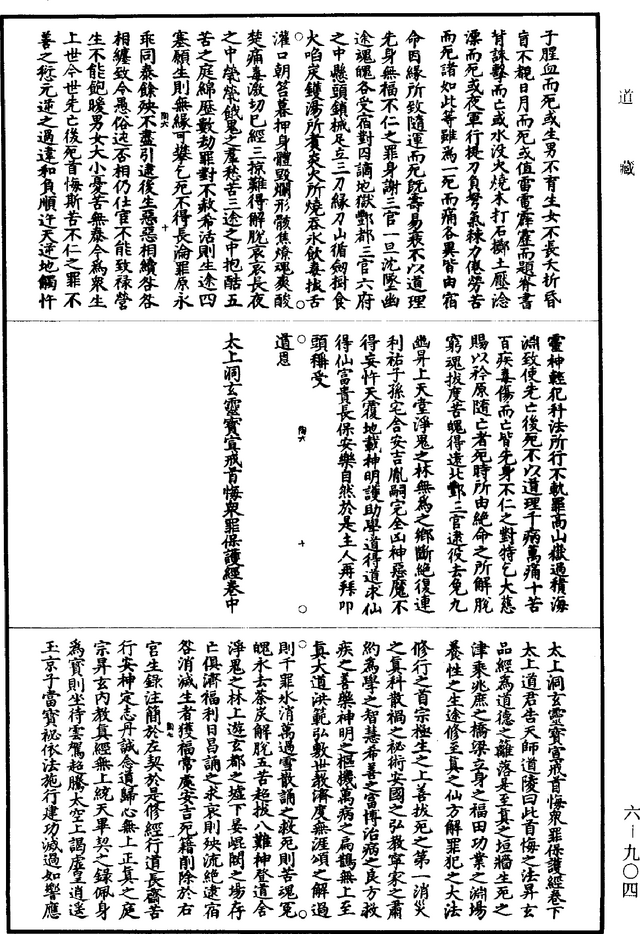 道藏
子腥血而死或生男不育生女不長夭折昏
盲不覩日月而死或值雷電霹靂而題脊書
背誅擊而亡或水没火燒木打石擲土壓淦
漂而死或夜軍行掟刀負弩氣棘力倦勞苦
而死諸如此等雖為一死而痛各異皆由宿
命因緣所致隨運而死既壽易衰不以道理
先身無福不仁之罪身謝三官一旦沈墜幽
途魂魄各受宿對囚謫地獄酆都三官六府
之中懸頭鎖械足立三刀緣刀山循劒樹食
火焰炭鑊湯所煑炎火所燒吞氷飲毒拔舌
灌口朝笞暮押身體毀爛形骸焦燎魂爽酸
楚痛毒激切已經三掠難得解脫哀哀長夜
之中煢煢餓鬼之處愁苦三途之中抱酷五
苦之庭綿歷數劫罪對不赦希活則生途四
塞願生則無緣可攀乞死不得長淪罪原永
乖同泰餘殃不盡引逮後生惡惡相續咎咎
相纏致令愚俗迍否相仍仕宦不能致禄營
生不能飽暖男女大小憂苦無泰今為衆生
上世今世先亡後死首悔斯苦不仁之罪不
善之愆元逆之過違和負順許天逆地觸忤
靈神輕犯科法所行不軌罪高山嶽過積海
淵致使先亡後死不以道理千病萬痛十苦
百疾毒傷而亡皆先身不仁之對特乞大慈
賜以矜原隨亡者死時所由絕命之所解脫
窮魂拔度苦魄得遠北酆三官逮役去免九
幽昇上天堂淨鬼之林無為之鄉斷絕復連
利祐子孫宅合安吉胤嗣完全凶神惡魔不
得妄忤天覆地載神明護助學道得道求仙
得仙富貴長保安樂自然於是主人再拜叩
頭稱受
道恩
太上洞玄靈寶宣戒首悔衆罪保護經卷中
太上洞玄靈寶宣戒首悔衆罪保護經卷下
太上道君告天師道陵曰此首悔之法昇玄
品經為道德之離落是至真之垣牆生死之
津乘兆庶之橋梁立身之福田功業之淵場
養性之生途修至真之仙方解罪犯之大法
修行之首宗極生之上善拔死之第一消災
之真科散禍之祕術安國之弘教寧家之肅
約為學之智慧希善之當博治病之良方救
疾之善藥神明之樞機萬病之扁鵲無上至
真大道洪範弘敷世教濟度無涯頌之解過
則千罪氷消萬過雪散誦之救死則苦魂冤
魄永去荼炭解脫五苦超拔八難神登道合
淨鬼之林上遊玄都之墟下晏崐閬之場存
亡俱濟福利日昌誦之求哀則殃流絕逮宿
咎消滅生者獲福常處安吉死籍削除於右
官生錄注簡於左契於是修經行道長齋苦
行安神定志丹誠念遺歸心無上正真之庭
宗昇玄內教真經無上統天畢契之錄佩身
為寶則坐待雲駕超騰太空上謁虛皇逍遙
玉京子當寶祕依法施行建功滅過如響應
六－九〇四